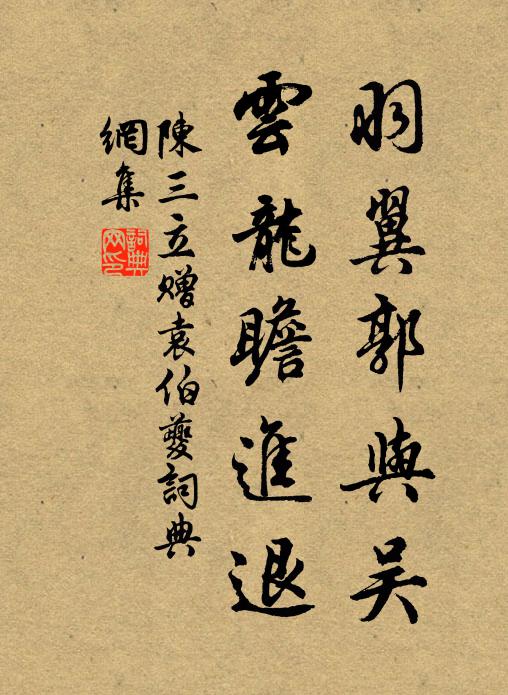 羽翼郭與吴
雲龍瞻進退
陳三立赠袁伯夔詞典
網集
詞典
网印